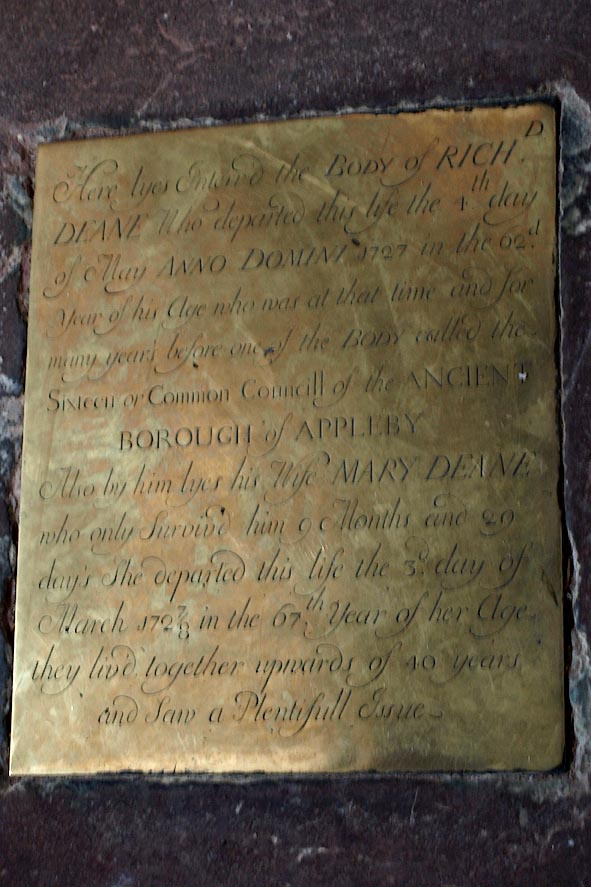 Here lyes Interr'd the BODY of RICH.D
DEANE Who departed this life the 4.th day
of May ANNO DOMINI 1727 in the 62.d
Year of his Age who was at that time and for
many years before one of the BODY called the
Sixteen or Common Councill of the ANCIENT
BOROUGH of APPLEBY
Also by him lyes his Wife MARY DEANE
who only Surviv'd him 9 Months and 29
day's She departed this life the 3.d day of
March 172 7/8 in the 67.th Year of her Age
they liv'd together upwards of 40 years
and Saw a Plentifull Issue